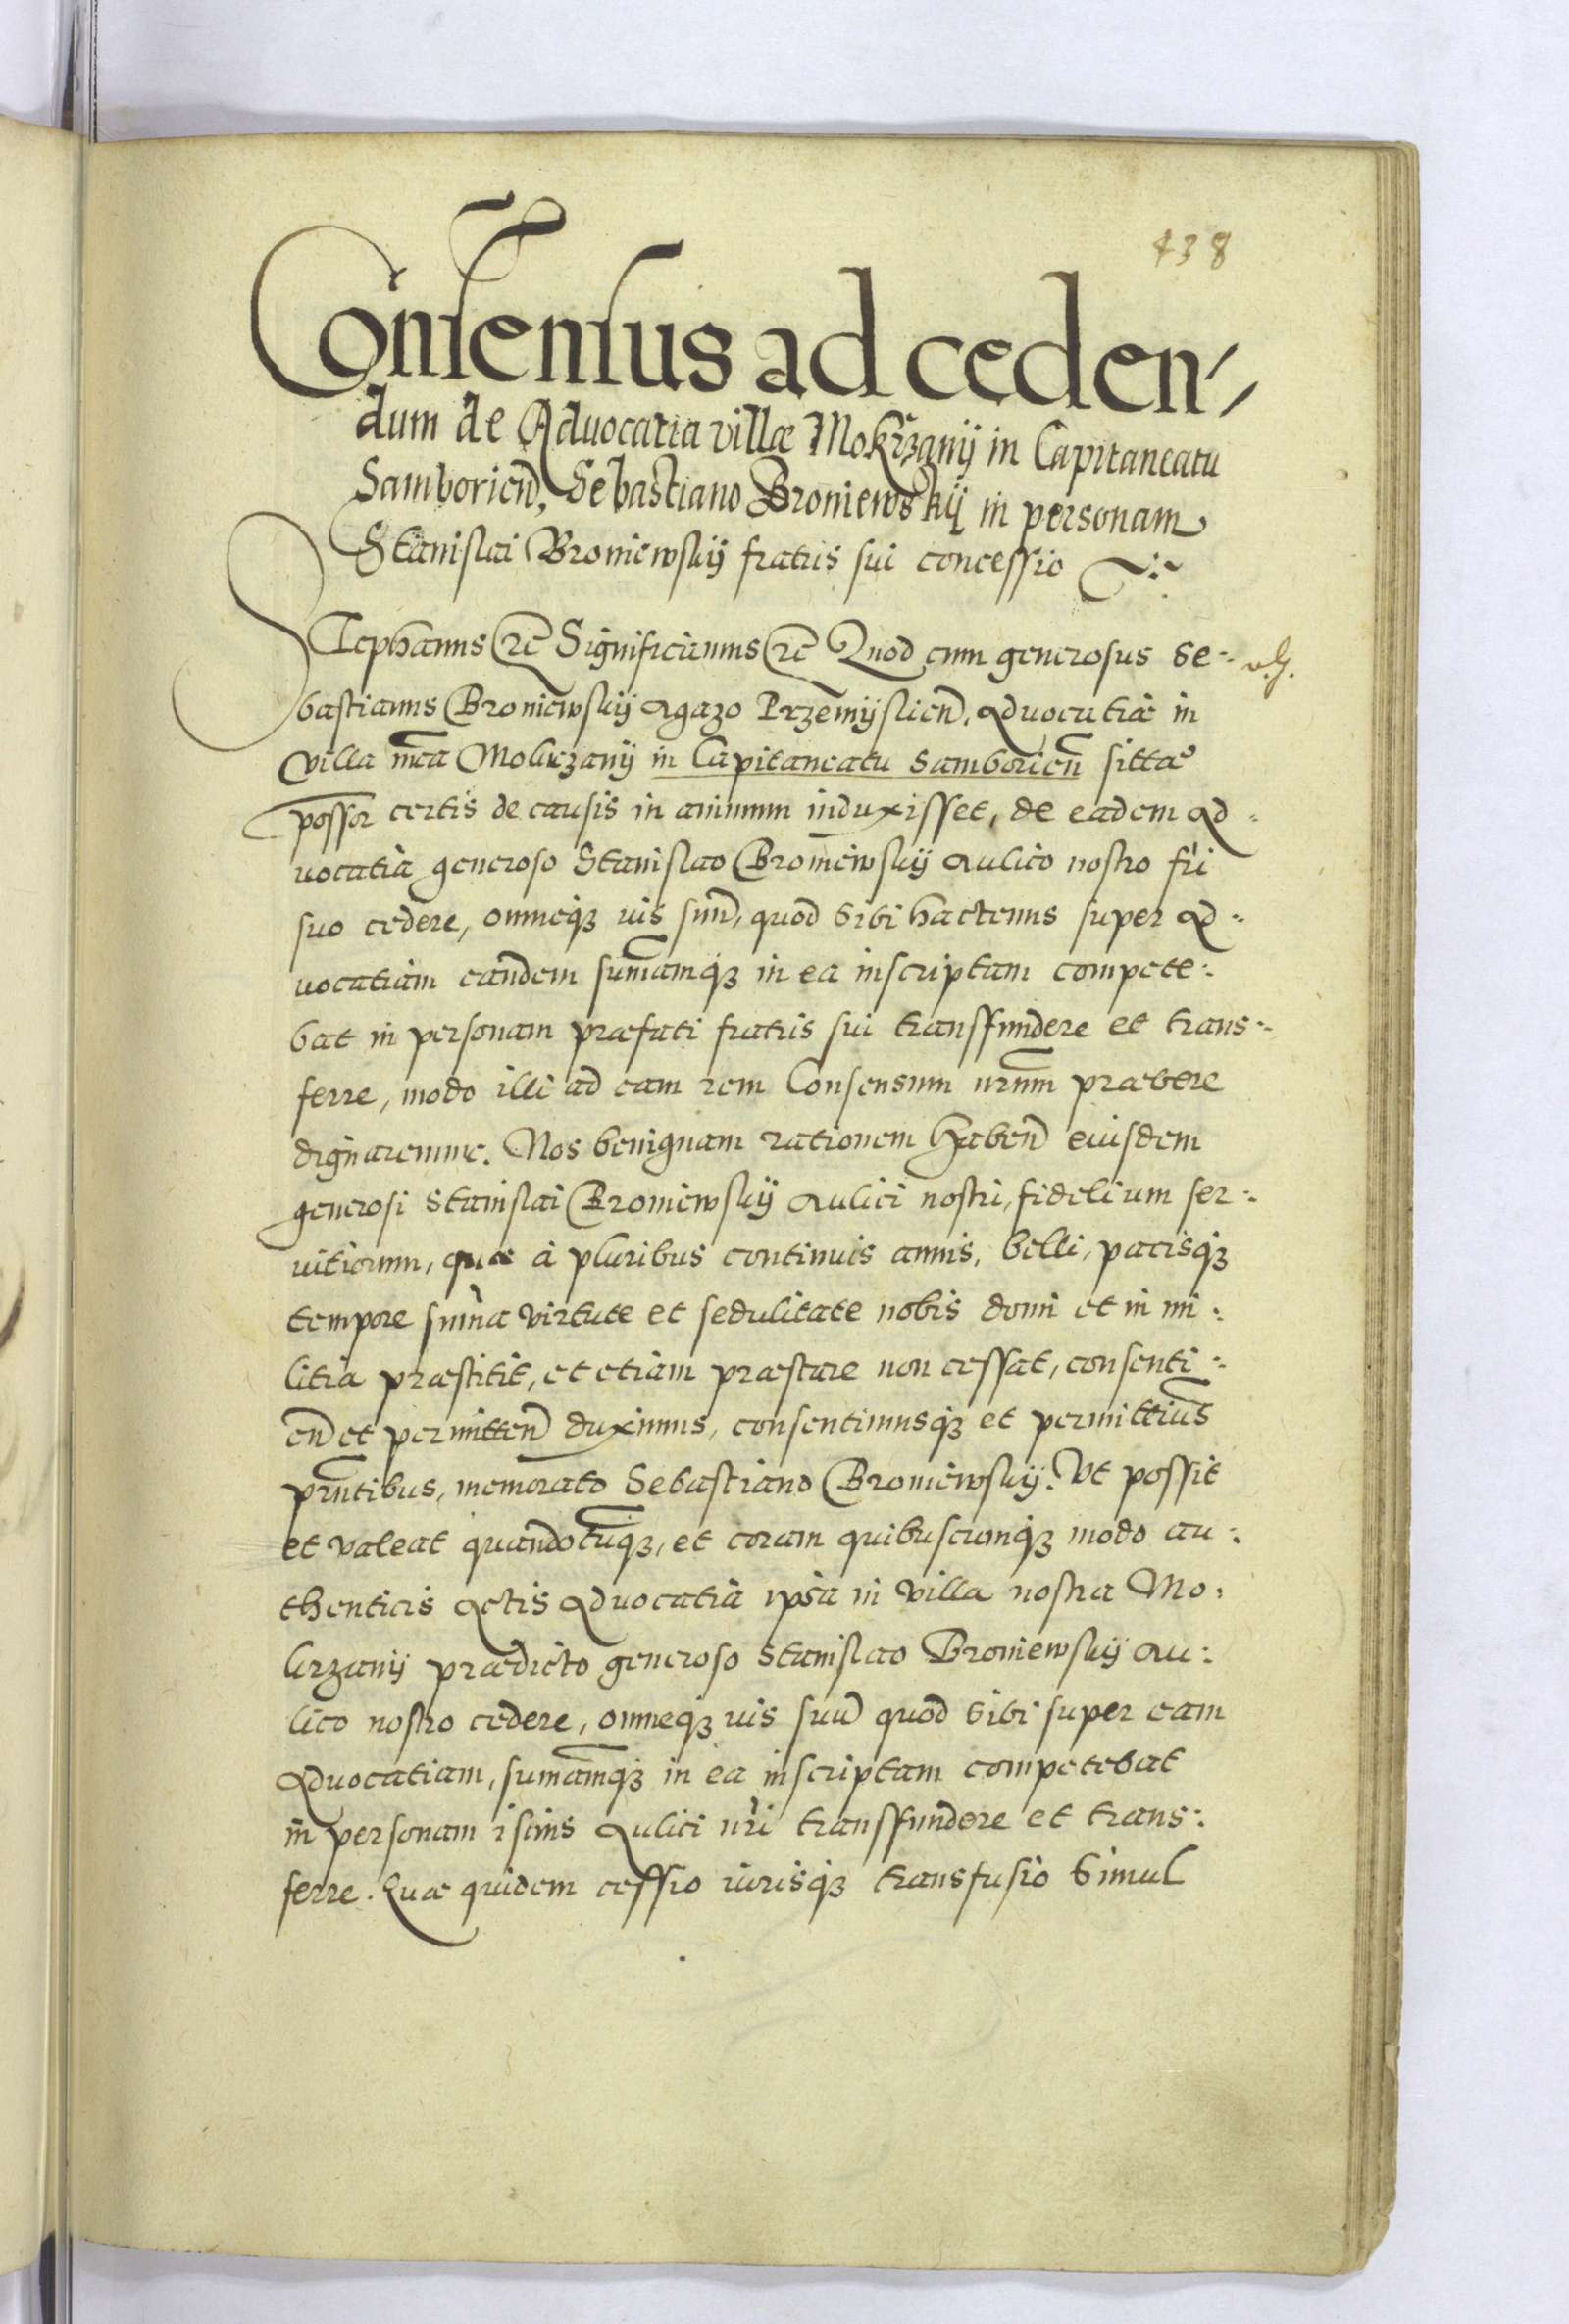 438
Consensus ad ceden
dum de Advocatia villæ Mokrzanÿ in Capitaneatu
Samborieñ, Sebastiano Broniewskÿ in personam
Stanislai Broniewskÿ fratris sui concessio
Stephanus etc̃ Significamus etc̃ Quod cum generosus Se-
bastianus Broniewskÿ Agazo Przemÿslieñ. Advocatiæ in
villa nr̃a Mokrzanÿ in Capitaneatu Samborieñ sittæ
possor certis de causis in animum induxisset, de eadem Ad-
vocatia generoso Stanislao Broniewskÿ Aulico nostro fr̃i
suo cedere, omneq₃ ius suũ, quod sibi hactenus super Ad-
vocatiam eandem sum̃amq₃ in ea inscriptam compete-
bat in personam præfati fratris sui transfundere et trans-
ferre, modo illi ad eam rem Consensum nr̃um præbere
dignaremur. Nos benignam rationem habeñ eiusdem
generosi Stanislai Broniewskÿ Aulici nostri, fidelium ser-
vitiorum, quæ à pluribus continuis annis, belli, pacisq₃
tempore sum̃a virtute et sedulitate nobis domi et in mi-
litia præstitit, et etiam præstare non cessat, consenti-
eñ et permitteñ duximus, consentimusq₃ et permittim̃us
pr̃ntibus, memorato Sebastiano Broniewskÿ. Vt possit
et valeat quandocũq₃, et coram quibuscumq₃ modo au-
thenticis Actis Advocatia ipsa in villa nostra Mo-
krzanÿ prædicto generoso Stanislao Broniewskÿ Au-
lico nostro cedere, omneq₃ ius suũ quod sibi super eam
Advocatiam, sum̃amq₃ in ea inscriptam competebat
in personam istius Aulici nr̃i transfundere et trans-
ferre. Quæ quidem cessio iurisq₃ transfusio simul